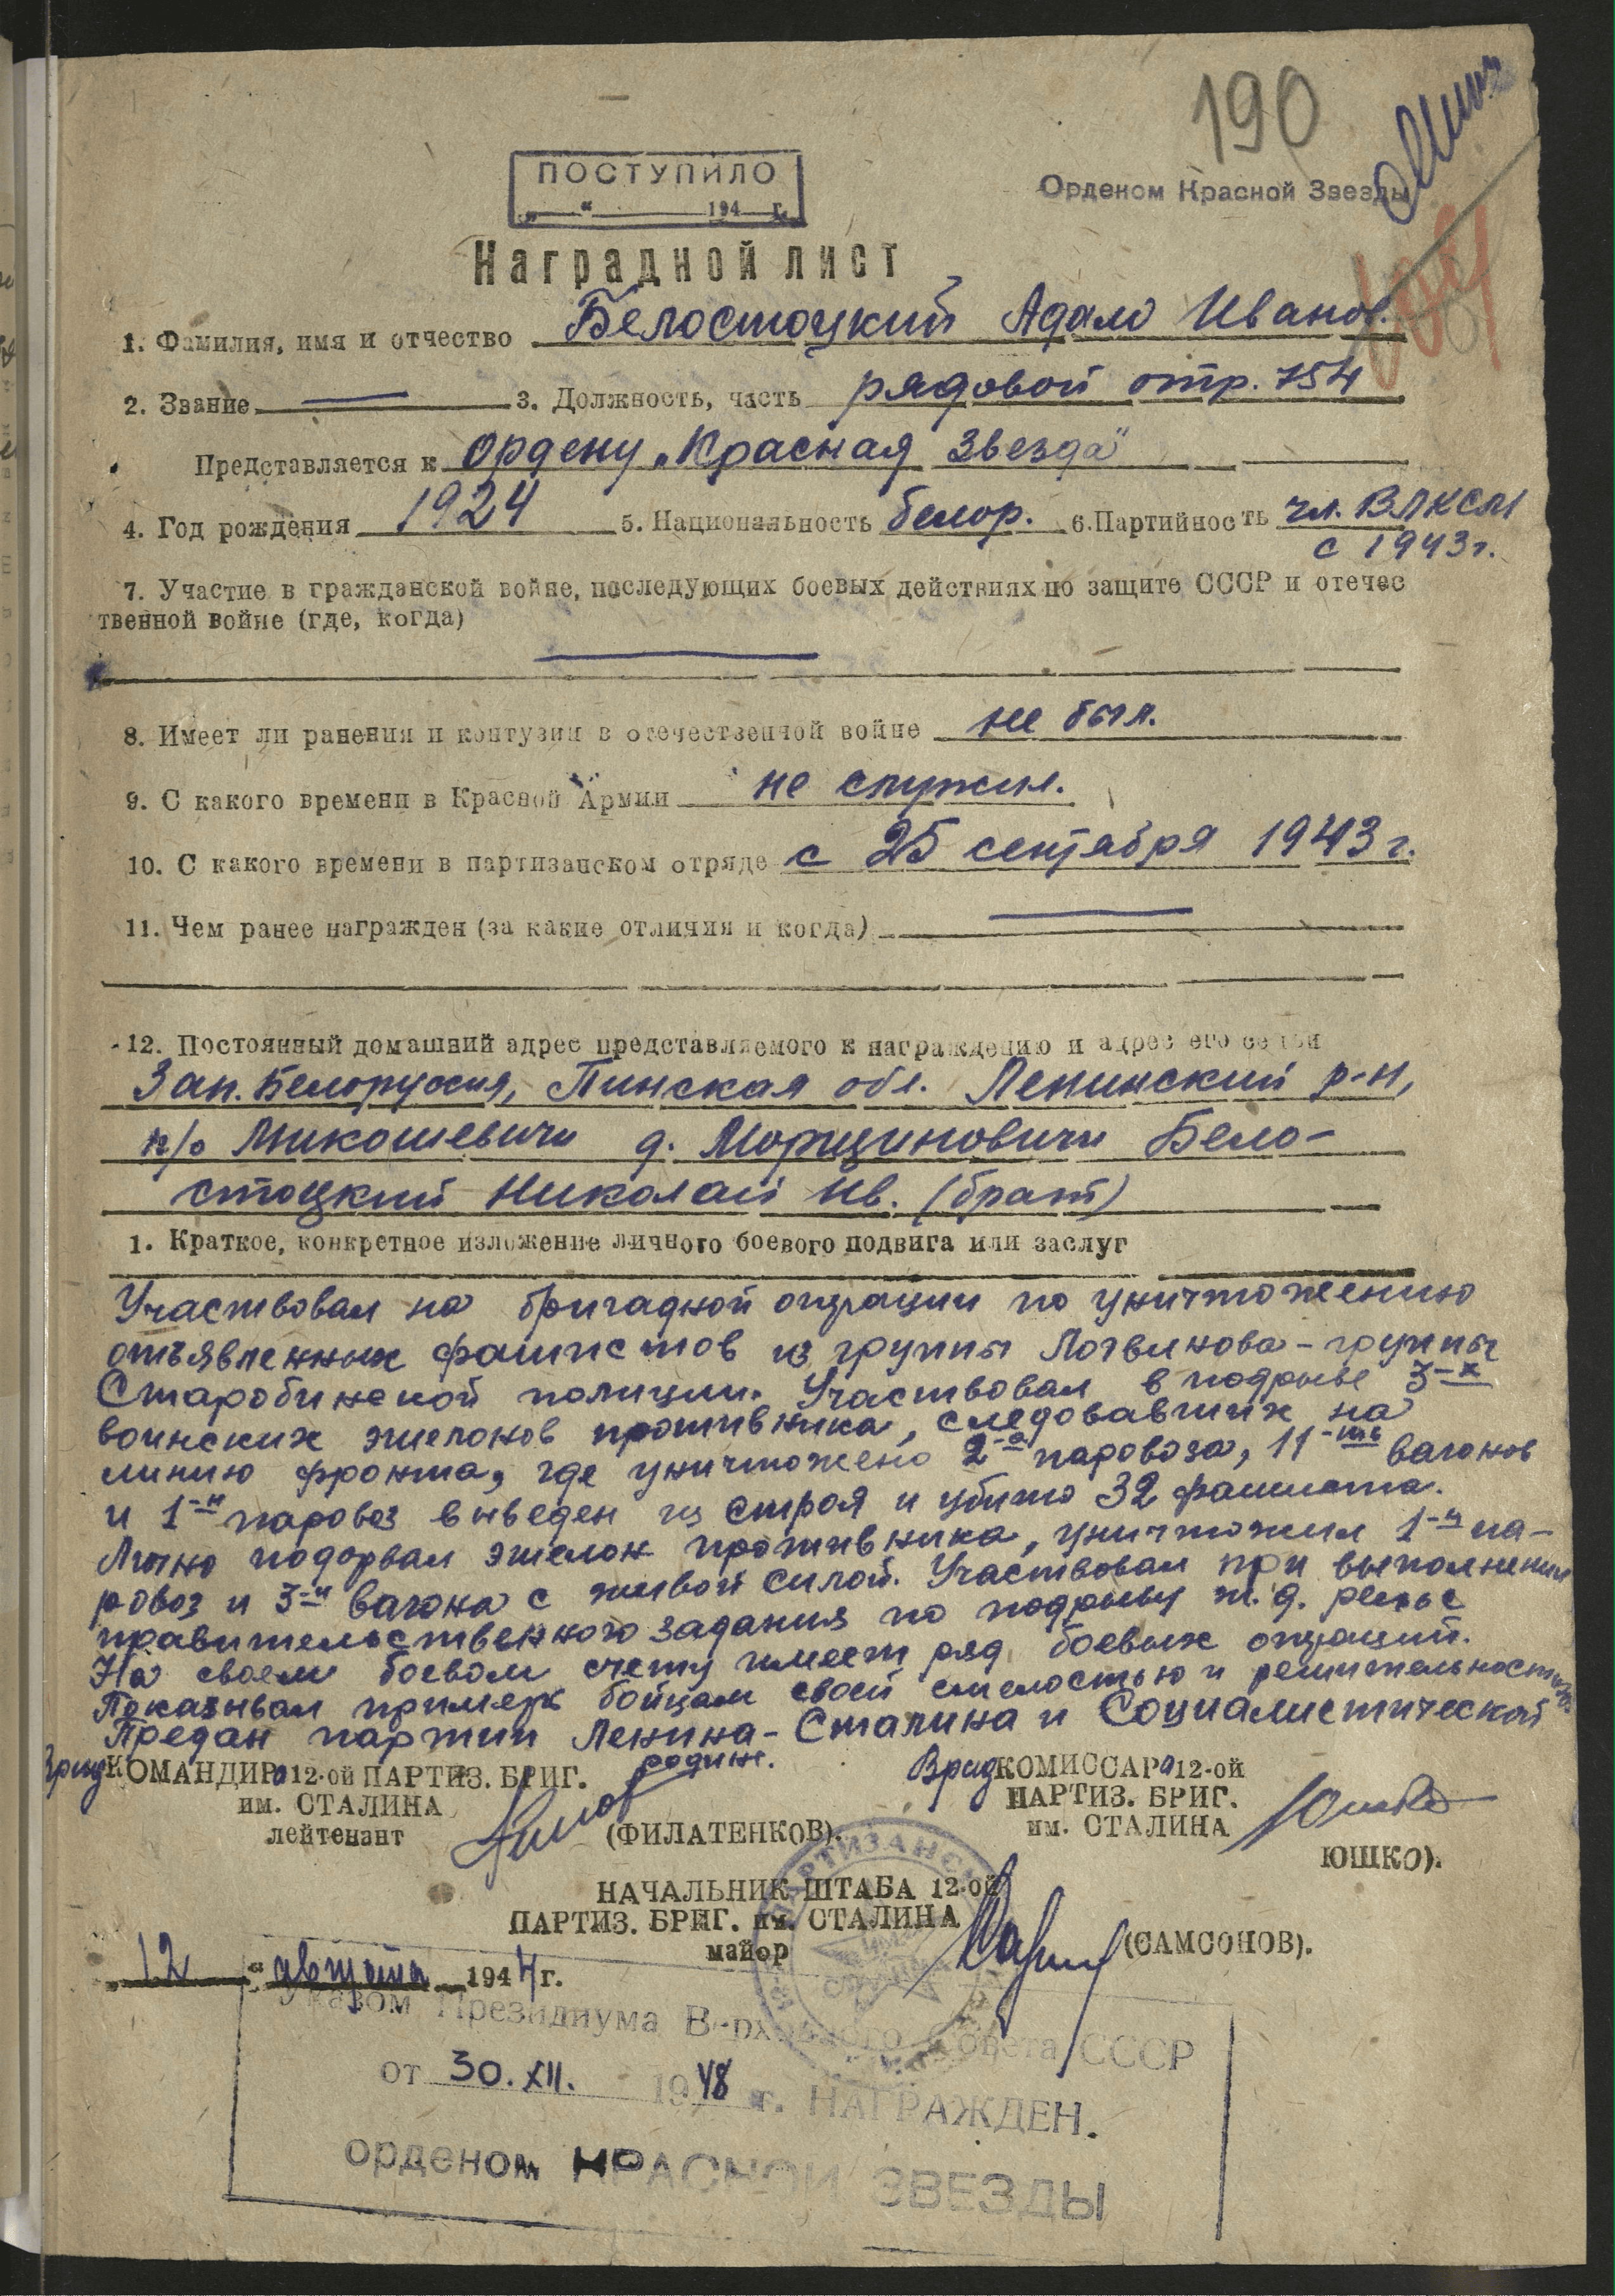 190
ПОСТУПИЛО
„ “ 194 г.
Орденом Красной Звезды
Наградной лист
1. Фамилия, имя и отчество Белостоцкий Адам Иванов.
2. Звание — 3. Должность, часть рядовой отр. 754
Представляется к ордену „Красная Звезда"
4. Год рождения 1924 5. Национальность белор. 6. Партийность чл. ВЛКСМ
с 1943 г.
7. Участие в гражданской войне, последующих боевых действиях по защите СССР и отечес
твенной войне (где, когда)
—
8. Имеет ли ранения и контузии в отечественной войне не был.
9. С какого времени в Красной Армии не служил.
10. С какого времени в партизанском отряде с 25 сентября 1943 г.
11. Чем ранее награжден (за какие отличия и когда) —
12. Постоянный домашний адрес представляемого к награждению и адрес его семьи
Зап. Белоруссия, Пинская обл. Ленинский р-н,
п/о Микошевичи д. Морщиновичи Бело-
стоцкий Николай Ив. (брат)
1. Краткое, конкретное изложение личного боевого подвига или заслуг
Участвовал на бригадной операции по уничтожению
отъявленных фашистов из группы Логвинова - группы
Старобинской полиции. Участвовал в подрыве 3-х
воинских эшелонов противника, следовавших на
линию фронта, где уничтожено 2-а паровоза, 11-ть вагонов
и 1-н паровоз выведен из строя и убито 32 фашиста.
Лично подорвал эшелон противника, уничтожил 1-н па-
ровоз и 3-и вагона с живой силой. Участвовал при выполнении
правительственного задания по подрыву ж.д. рельс
На своем боевом счету имеет ряд боевых операций.
Показывал пример бойцам своей смелостью и решительностью.
Предан партии Ленина-Сталина и Социалистической
родине.
Врид КОМАНДИРа 12-ой ПАРТИЗ. БРИГ.
им. СТАЛИНА
лейтенант
(ФИЛАТЕНКОВ).
Врид КОМИССАРа 12-ой
ПАРТИЗ. БРИГ.
им. СТАЛИНА
ЮШКО).
НАЧАЛЬНИК ШТАБА 12-ой
ПАРТИЗ. БРИГ. им. СТАЛИНА
майор
(САМСОНОВ).
„12" августа 1944 г.
Указом Президиума Верховного Совета СССР
от 30.XII. 1948 г. НАГРАЖДЕН.
орденом КРАСНОЙ ЗВЕЗДЫ